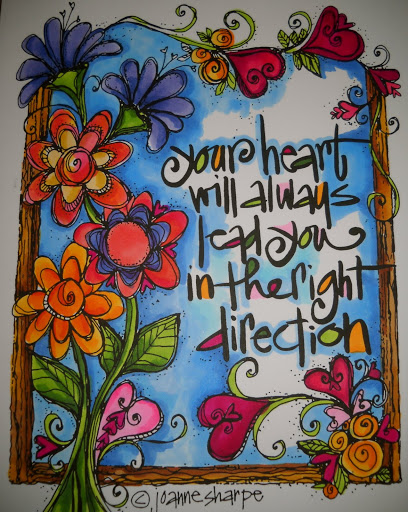 your heart
will always
lead you
in the right
direction
© joanne sharpe